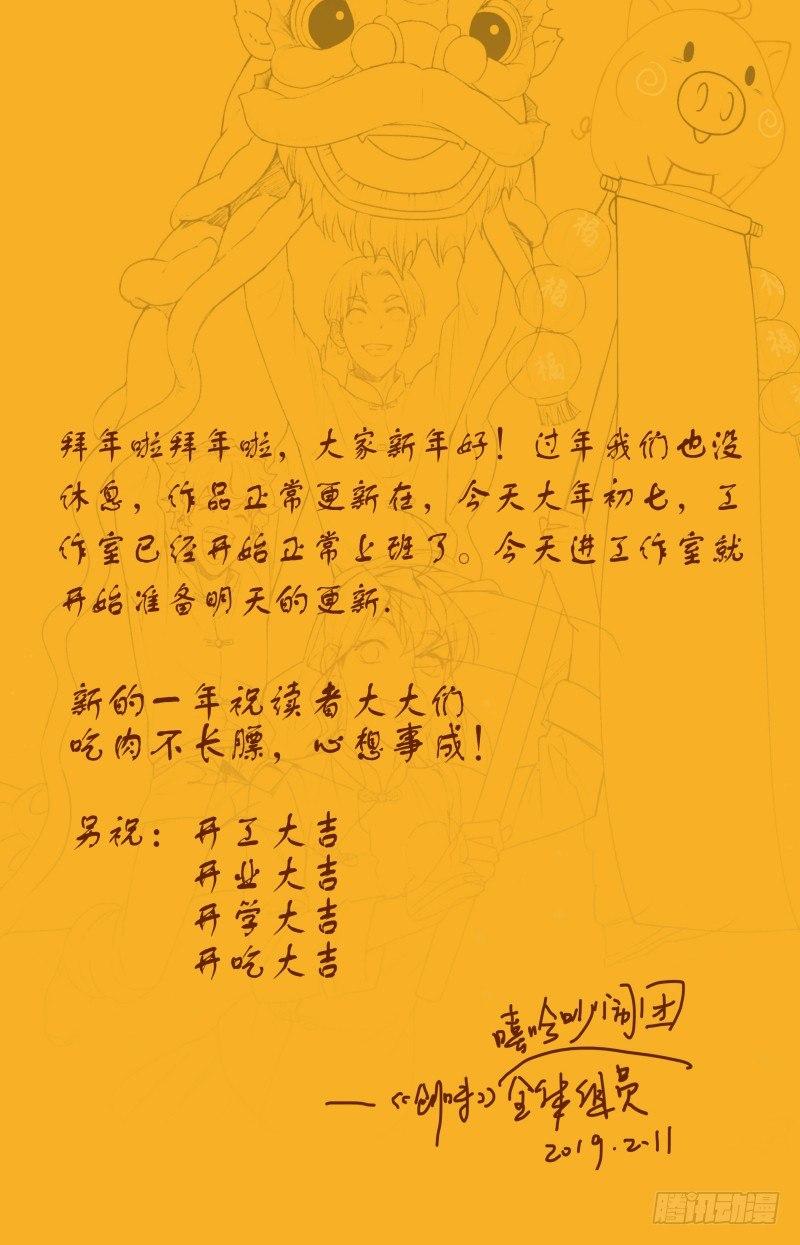 福
福
福
福
福
福
拜年啦拜年啦，大家新年好！过年我们也没
休息，作品正常更新在，今天大年初七，工
作室已经开始正常上班了。今天进工作室就
开始准备明天的更新.
新的一年祝读者大大们
吃肉不长膘，心想事成！
另祝：开工大吉
开业大吉
开学大吉
开吃大吉
嘻哈吵闹团
—《创味》全体组员
2019.2.11
腾讯动漫